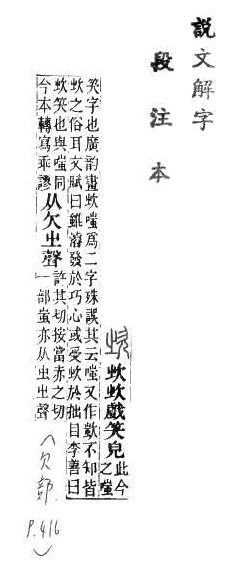 説文解字
段注本
㰞㰞戲笑皃此今
之嗤
笑字也廣韵畫㰞嗤爲二字殊誤其云嗤又作不知皆
㰞之俗耳文賦曰雖濬發於巧心或受㰞於拙目李善曰
㰞笑也與嗤同
今本轉寫乖謬
从欠㞢聲
許其切按當赤之切
一部蚩亦从虫㞢聲
(欠部 P.416)